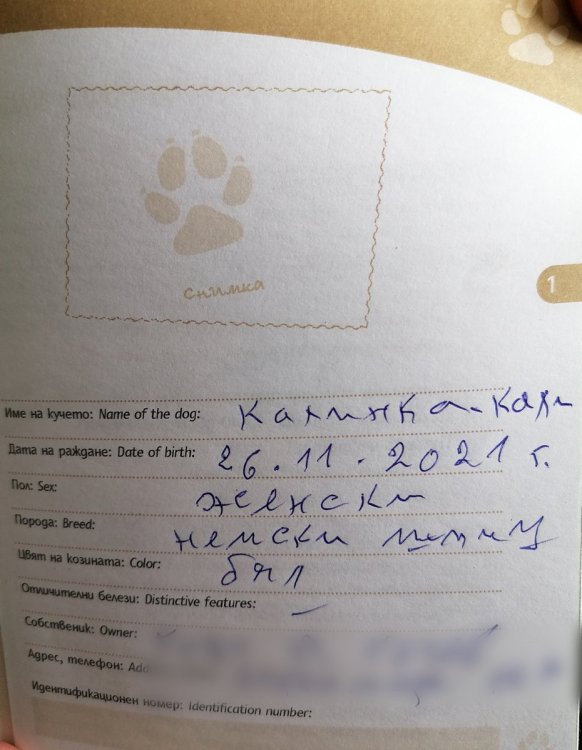 снимка
1
Име на кучето: Name of the dog: Калинка-Кали
Дата на раждане: Date of birth: 26.11.2021 г.
Пол: Sex: женски
Порода: Breed: немски шпиц
Цвят на козината: Color: бял
Отличителни белези: Distinctive features: –
Собственик: Owner:
Адрес, телефон:
Идентификационен номер: Identification number: